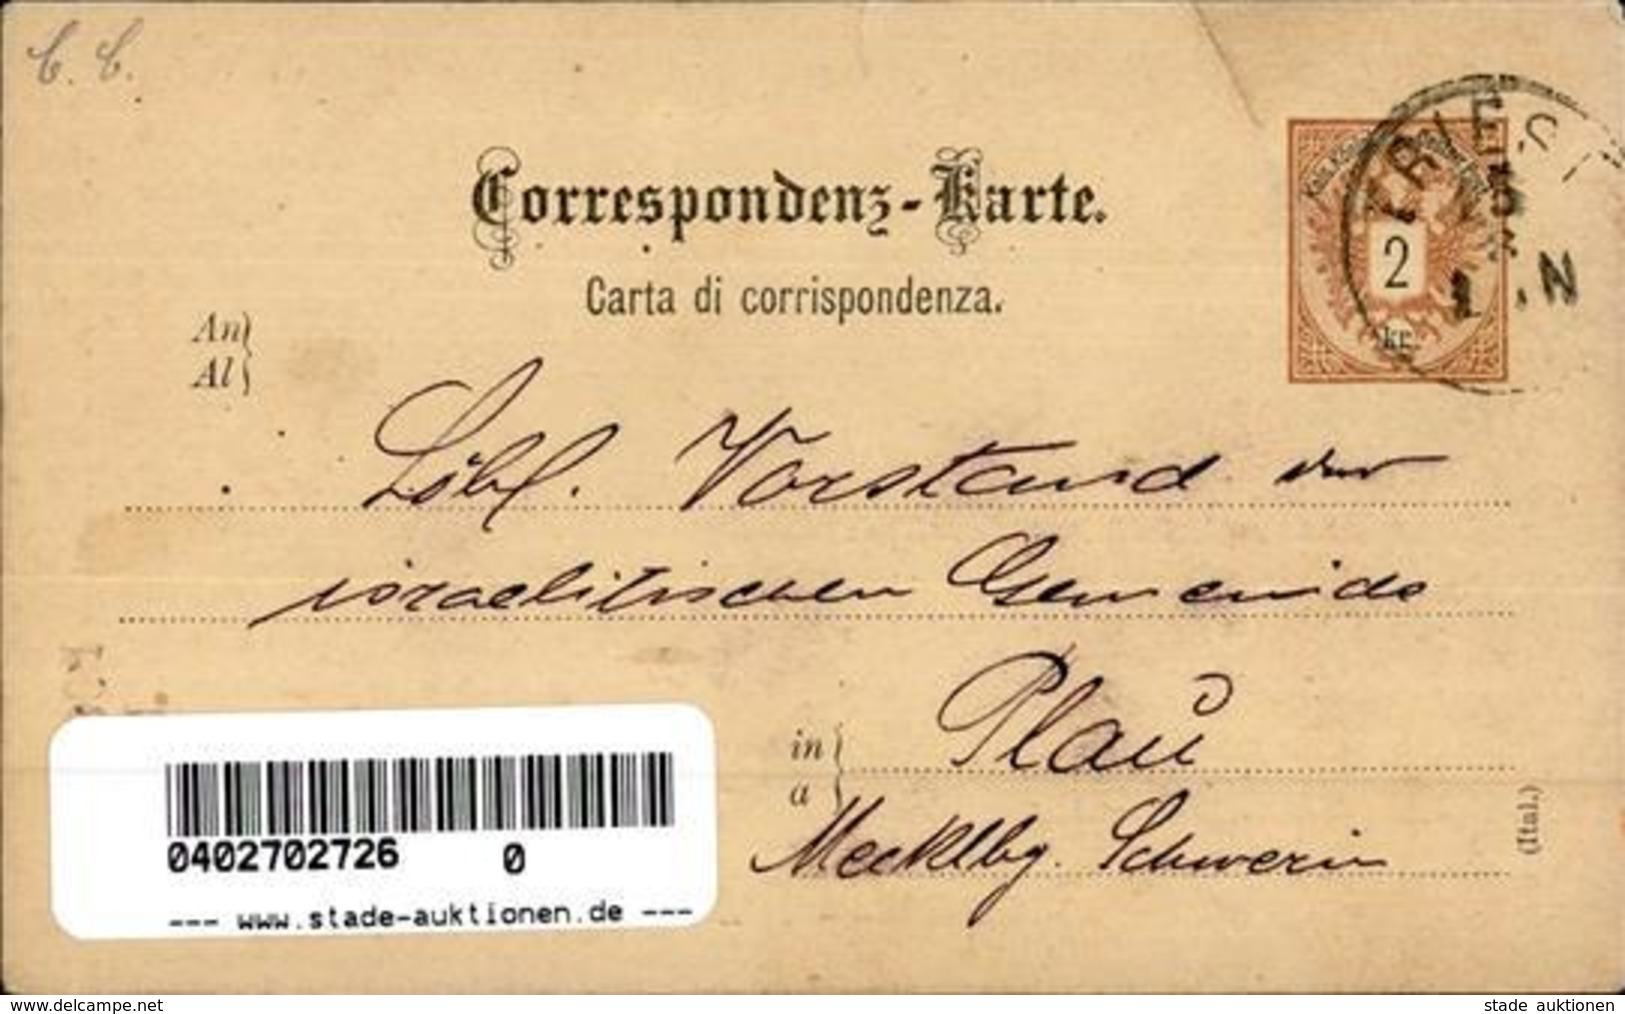 C. C.
Correspondenz-Karte.
Carta di corrispondenza.
An
Al
TRIEST
2
kr.
N
Löbl. Vorstand der
israelitischen Gemeinde
in Plau
a
Mecklbg. Schwerin
(Ital.)
0402702726 0
--- www.stade-auktionen.de ---
www.delcampe.net
stade auktionen